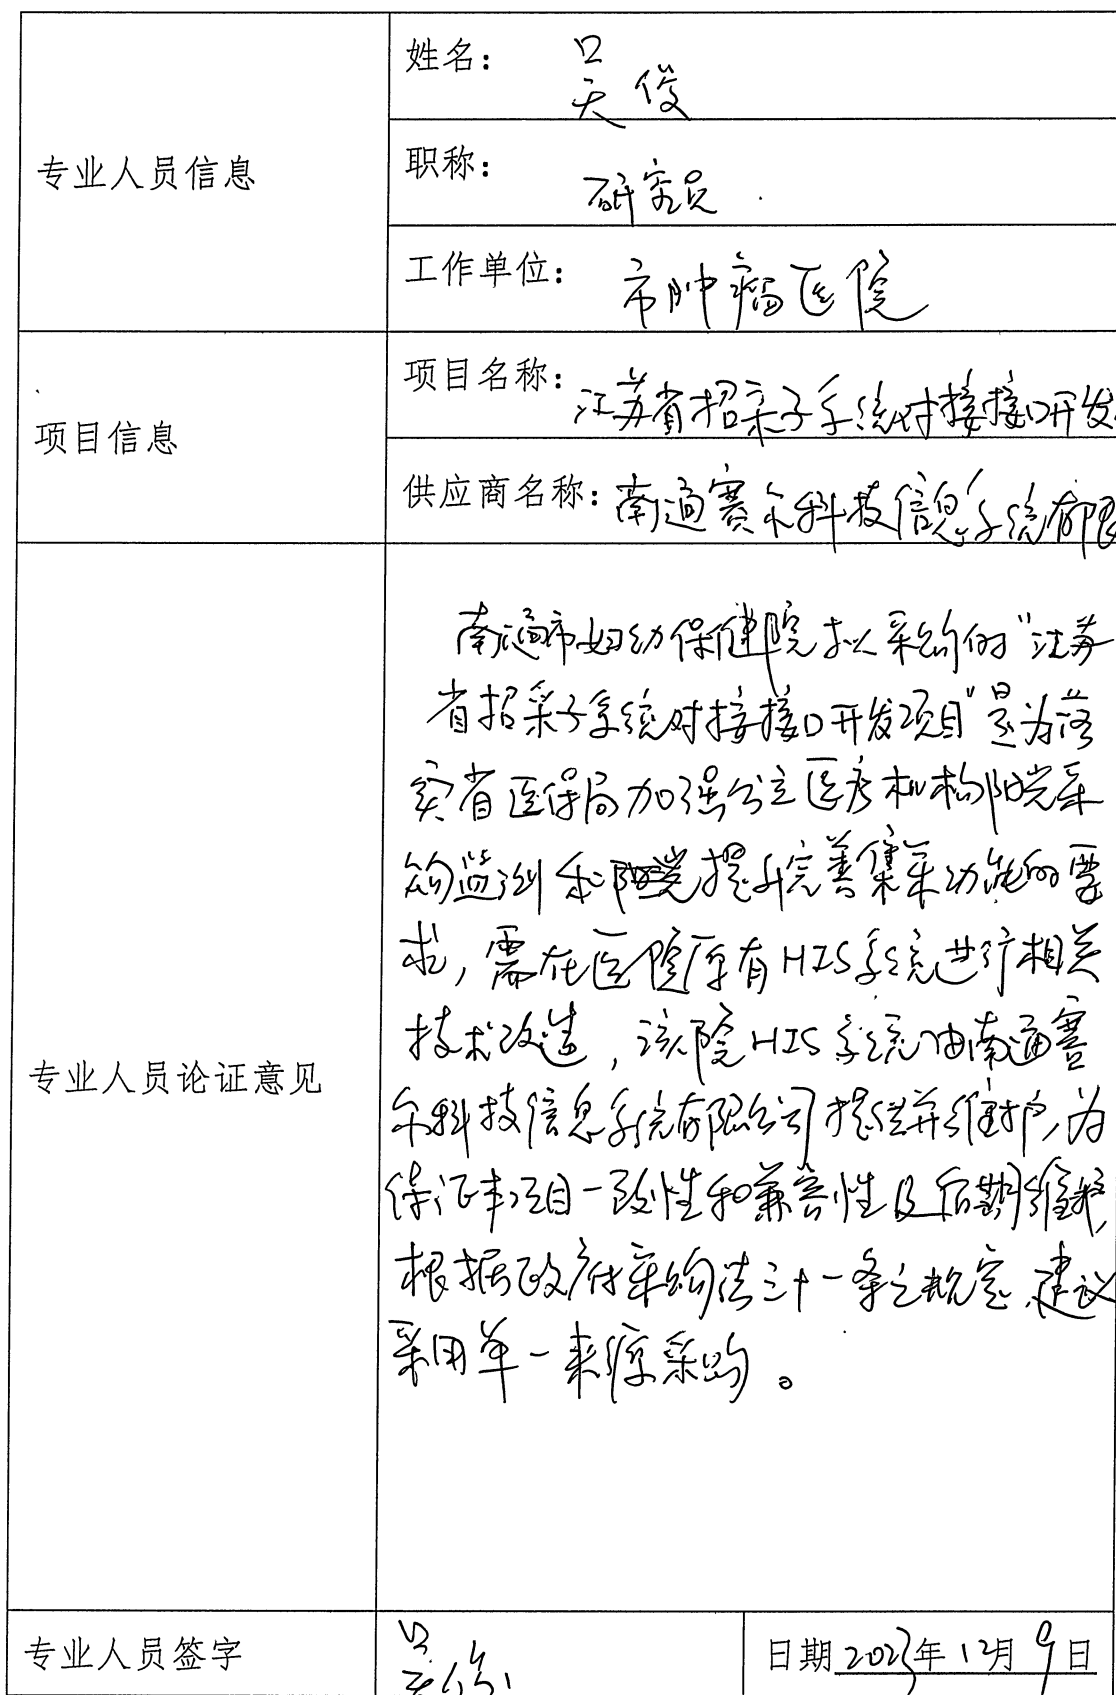 姓名： 吴俊
职称： 研究员
专业人员信息
工作单位： 市肿瘤医院
项目名称：江苏省招采子系统对接接口开发
项目信息
供应商名称：南通赛尔科技信息系统有限
南通市妇幼保健院拟采购的“江苏
省招采子系统对接接口开发项目”是为落
实省医保局加强公立医疗机构阳光采
购监测和提升完善集采功能的要
求，需在医院原有HIS系统进行相关
技术改造，该院HIS系统由南通赛
尔科技信息系统有限公司提供并维护，为
保证本项目一致性和兼容性及后期维护，
根据政府采购法三十一条之规定，建议
采用单一来源采购。
专业人员论证意见
专业人员签字 吴俊 日期 2023年12月9日